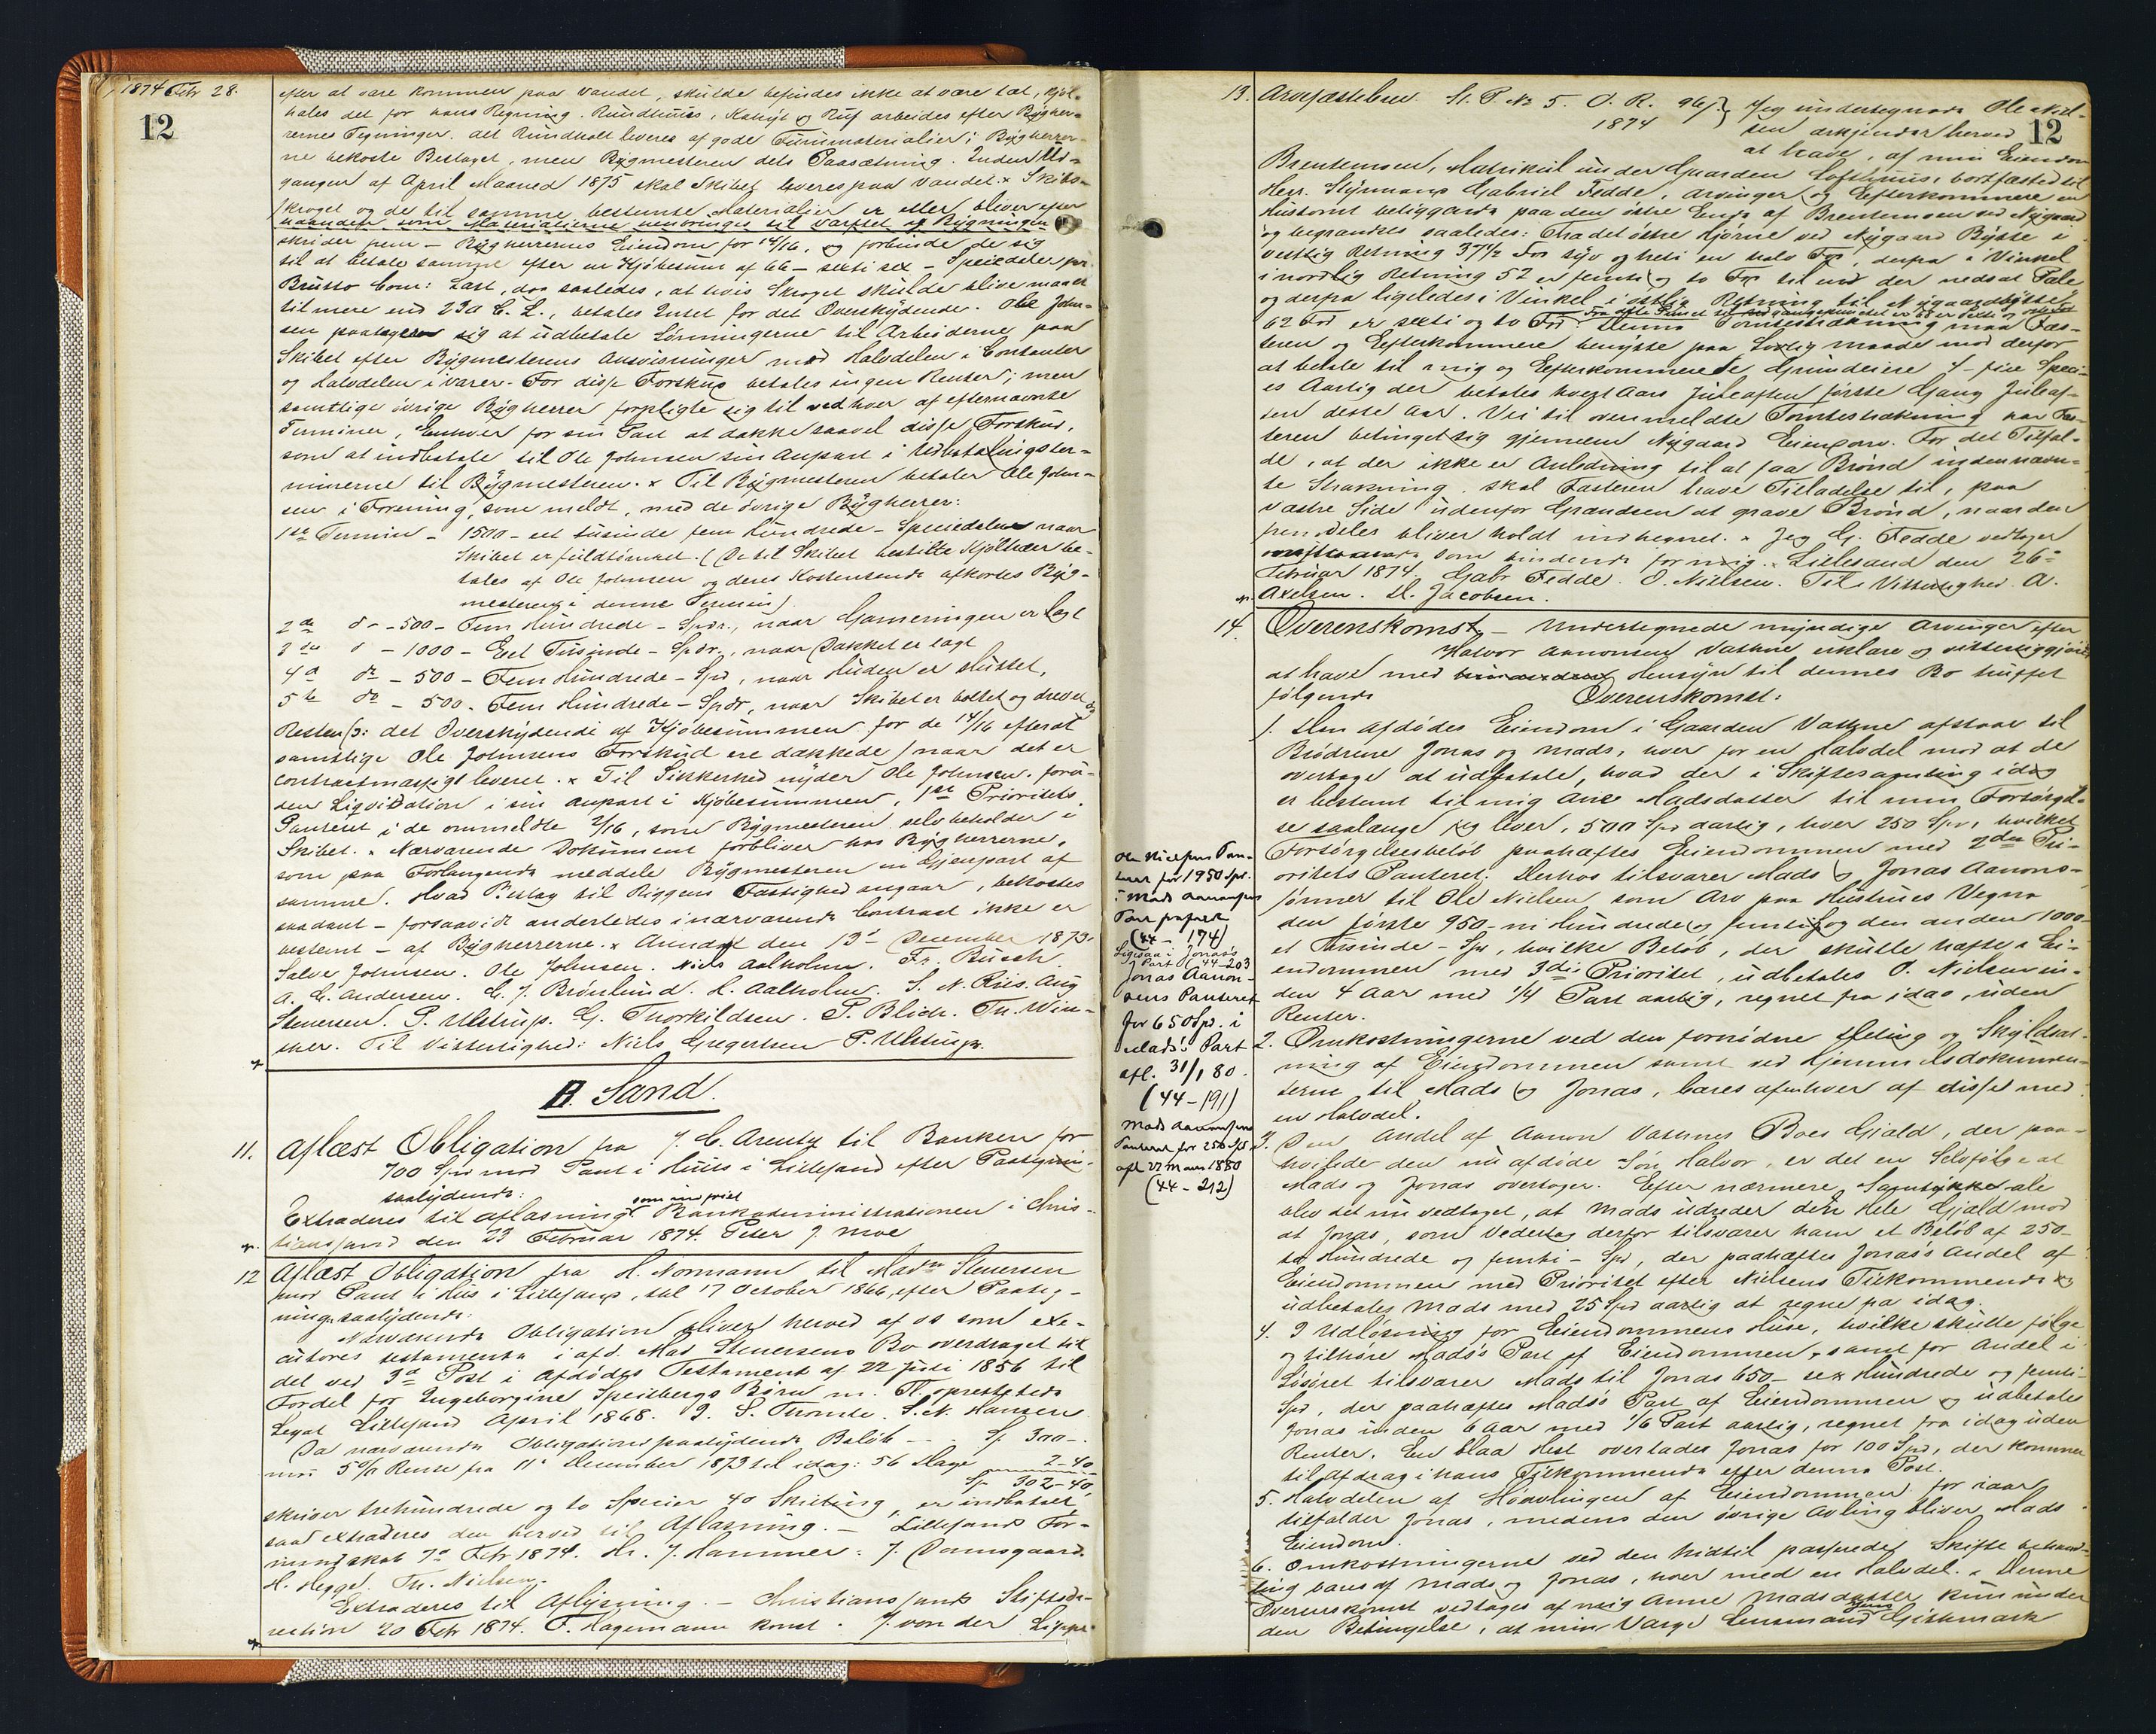 1874 Febr 28.
12
efter at være kommen paa Vandet, skulde befindes ikke at være tæt, kjøl-
hales det for hans Regning. Rundhuus, Kahyt og Ruf arbeides efter Bygher-
rernes Tegninger. Alt Rundholt leveres af gode Furumaterialier; Bygherrer-
ne bekoste Beslaget, men Bygmesteren dets Paasætning. Inden Ud-
gangen af April Maaned 1875 skal Skibet leveres paa Vandet. x Skibs-
skroget og de til samme bestemte Materialier er eller bliver efter
haanden som Materialierne henbringes til Værftet og Bygningen
skrider frem – Bygherrernes Eiendom for 14/16, og forbinde de sig
til at betale samme efter en Kjøbesum af 66 – sexti sex – Speciedaler pr.
Brutto Com: Læst, dog saaledes, at hvis Skroget skulde blive maalt
til mere end 230 C. L., betales Intet for det Overskydende. Ole John-
sen paatager sig at udbetale Lønningerne til Arbeiderne paa
Skibet efter Bygmesterens Anvisninger med Halvdelen i Contanter
og Halvdelen i Varer. For disse Forskud betales ingen Renter; men
samtlige øvrige Bygherrer forpligte sig til ved hver af efternævnte
Terminer, Enhver for sin Part at dække saavel disse Forskud,
som at indbetale til Ole Johnsen sin Anpart i Udbetalingster-
minerne til Bygmesteren. x Til Bygmesteren betaler Ole John-
sen i Forening, som meldt, med de øvrige Bygherrer:
1ste Termin – 1500 – et tusinde fem Hundrede – Speciedaler naar
Skibet er fuldtømret. (De til Skibet bestilte Kjøltræer be-
tales af Ole Johnsen og deres Kostende afkortes Byg-
mesteren i denne Termin)
2de do – 500 – Fem Hundrede – Spdr., naar Garneringen er lagt
3die do – 1000 – Eet Tusinde – Spdr., naar Dækket er lagt
4de do – 500 – Fem Hundrede – Spd, naar Huden er sluttet,
5te do – 500 – Fem Hundrede – Spdr, naar Skibet er boltet og drevet og
Resten (o: det Overskydende af Kjøbesummen for de 14/16 efterat
samtlige Ole Johnsens Forskud ere dækkede) naar det er
contractmæssigt leveret. x Til Sikkerhed nyder Ole Johnsen, foru-
den Liqvidation i sin Anpart i Kjøbesummen, 1ste Prioritets
Panteret i de ommeldte 2/16, som Bygmesteren selv beholder i
Skibet. x Nærværende Dokument forbliver hos Bygherrerne,
som paa Forlangende meddele Bygmesteren en Gjenpart af
samme. Hvad Beslag til Riggens Fastighed angaar, bekostes
saadant – forsaavidt anderledes i nærværende Contract ikke er
bestemt – af Bygherrerne. x Arendal den 13de December 1873.
Salve Johnsen. Ole Johnsen. Niels Aalholm. Fr. Busch.
A. C. Andersen. C. J. Brønlund. H. Aalholm. S. N. Riis. Aug
Steuersen. P. Ulstrup. G. Thorkildsen. P. Blich. Th. Win-
ther. Til Vitterlighed: Niels Gregertsen P. Ulstrup.
B. Sand.
11. Aflæst Obligation fra J. C. Arentz til Banken for
700 Spd mod Pant i Huus i Lillesand efter Paategning
saalydende:
Extraderes til Aflæsning som indfriet Bankadministrationen i Chris-
tianssand den 23 Februar 1874. Peter J. Moe
12 Aflæst Obligation fra H. Normann til Madm Steuersen
mod Pant i Hus i Lillesand, dat 17 October 1866, efter Paateg-
ning saalydende:
Nærværende Obligation bliver herved af os som exe-
cutores testamenti i afd. Mad Steuersens Bo overdraget til
det ved 3die Post i Afdødes Testament af 22 Juli 1856 til
Fordel for Ingeborgine Speilbergs Børn m. Fl. oprettede
Legat Lillesand April 1868. J. S. Thomle. S. N. Hansen
Da nærværende Obligations paalydende Beløb – – Sp 300 –.
med 5% Rente fra 11te December 1873 til idag: 56 Dage 2–40
Sp 302–40,
skriver trehundrede og to Specier 40 Skilling, er indbetalt
saa extraderes den herved til Aflæsning. – Lillesands For-
mandskab 7de Febr 1874. Hr. J. Hammer. J. Damsgaard.
H. Hegge. Th. Nielsen.
Extraderes til Aflysning. – Christianssands Stiftsdi-
rection 20 Febr 1874. F. Hagemann konst. J. von der Lippe
12
13. Arvefæstebrev. St. P. No 5. O. R. 96/1874 } Jeg undertegnede Ole Niel-
sen erkjender herved
at have, af min Eiendom
Brentemoen, Matrikul under Gaarden Lofthuus, bortfæstet til
Herr Styrmand Gabriel Fedde, Arvinger og Efterkommere en
Hustomt beliggende paa den østre Ende af Brentemoen ved Nygaard
og begrændset saaledes: Fra det østre Hjørne ved Nygaard Bytte i
vestlig Retning 37½ Fod syv og treti en halv Fod, derfra i Vinkel
i nordlig Retning 52 er femti og to Fod til en der nedsat Pæle
og derfra ligeledes i Vinkel i østlig Retning til Nygaardbyttet
62 Fod er sexti og to Fod. Fra dette Punct til Udgangspunctet er 68 er sexti og otte Fod
Denne Tomtestrækning maa Fæs-
teren og Efterkommere benytte paa Lovlig Maade mod derfor
at betale til mig og Efterkommerede Grundeiere 4 – fire Speci-
es Aarlig der betales hvert Aars Juleaften første Gang Juleaf-
ten dette Aar. Vei til ovenmeldte Tomtestrækning har Fæs-
teren betinget sig gjennem Nygaard Eiendom. For det Tilfæl-
de, at der ikke er Anledning til at faa Brønd inden nævn-
te Strækning, skal Fæsteren have Tilladelse til, paa
Vestre Side udenfor Grændsen at grave Brønd, naar den
fremdeles bliver holdt indhegnet. x Jeg G. Fedde vedtager
som bindende for mig. x Lillesand den 26de
Februar 1874. Gabr Fedde. O. Nielsen. Til Vitterlighed. A.
Axelsen. H. Jacobsen.
14. Overenskomst – Undertegnede myndige Arvinger efter
Halvor Aanonsen Vathne erklære og vitterliggjøre
at have med Hensyn til dennes Bo truffet
følgende Overenskomst:
1. Den Afdødes Eiendom i Gaarden Vathne afstaar til
Brødrene Jonas og Mads, hver for en Halvdel mod at de
overtage at udbetale, hvad der i Skiftesamling idag
er bestemt til mig Ane Madsdatter til min Forsørgel-
se saalænge jeg lever, 500 Spd aarlig, hver 250 Spd, hvilket
Forsørgelsesbeløb paahæftes Eiendommen med 2den Pri-
oritets Panteret; Derhos tilsvarer Mads og Jonas Aanons-
sønner til Ole Nielsen som Arv paa Hustrues Vegne
den første 950 – ni Hundrede og femti og den anden 1000 –
et Tusinde – Spd, hvilke Beløb, der skulle hæfte i Ei-
endommen med 3die Prioritet, udbetales O. Nielsen in-
den 4 Aar med ¼ Part aarlig, regnet fra idag, uden
Renter.
2. Omkostningerne ved den fornødne Deling og Skyldsæt-
ning af Eiendommen samt ved Hjemmelsdokumen-
terne til Mads og Jonas, bæres af enhver af disse med
en Halvdel.
3. Den Andel af Aanon Vathnes Boes Gjæld, der paa-
hvilede den nu afdøde Søn Halvor, er det en Selvfølge at
Mads og Jonas overtager. Efter nærmere Samtykke alle
blev det nu vedtaget, at Mads udreder den hele Gjæld mod
at Jonas, som Vederlag derfor tilsvarer ham et Beløb af 250 –
to Hundrede og femti – Spd, der paahæftes Jonas's Andel af
Eiendommen med Prioritet efter Nielsens Tilkommende og
udbetales Mads med 25 Spd aarlig at regne fra idag.
4. I Udløsning for Eiendommens Huse, hvilke skulle følge
og tilhøre Mads's Part af Eiendommen, samt for Andel i
Løsøret tilsvarer Mads til Jonas 650 – sex Hundrede og femti –
Spd, der paahæftes Mads's Part af Eiendommen og udbetales
Jonas inden 6 Aar med 1/6 Part aarlig, regnet fra idag uden
Renter. En blaa Hest overlades Jonas for 100 Spd, der kommer
til Afdrag i hans Tilkommende efter denne Post.
5. Halvdelen af Høavlingen af Eiendommen for iaar
tilfalder Jonas, medens den øvrige Avling bliver Mads
Eiendom.
6. Omkostningerne ved den hidtil passerede Skifte behand-
ling bæres af Mads og Jonas, hver med en Halvdel. x Denne
Overenskomst vedtages af mig Anne Madsdatter kun under
den Betingelse, at min Værge Lensmand Jens Gislemark
Ole Nielsens Pan-
teret for 1950 Spd.
i Mads Aanonsens
Part
(44 – 174)
Ligesaa i Jonas's
Part (44–203
Jonas Aanon-
sens Panteret
for 650 Spd. i
Mads's Part
afl. 31/1 80.
(44–191)
Mads Aanonsens
Panteret for 250 Spd
afl 22 Mars 1880
(44–212)